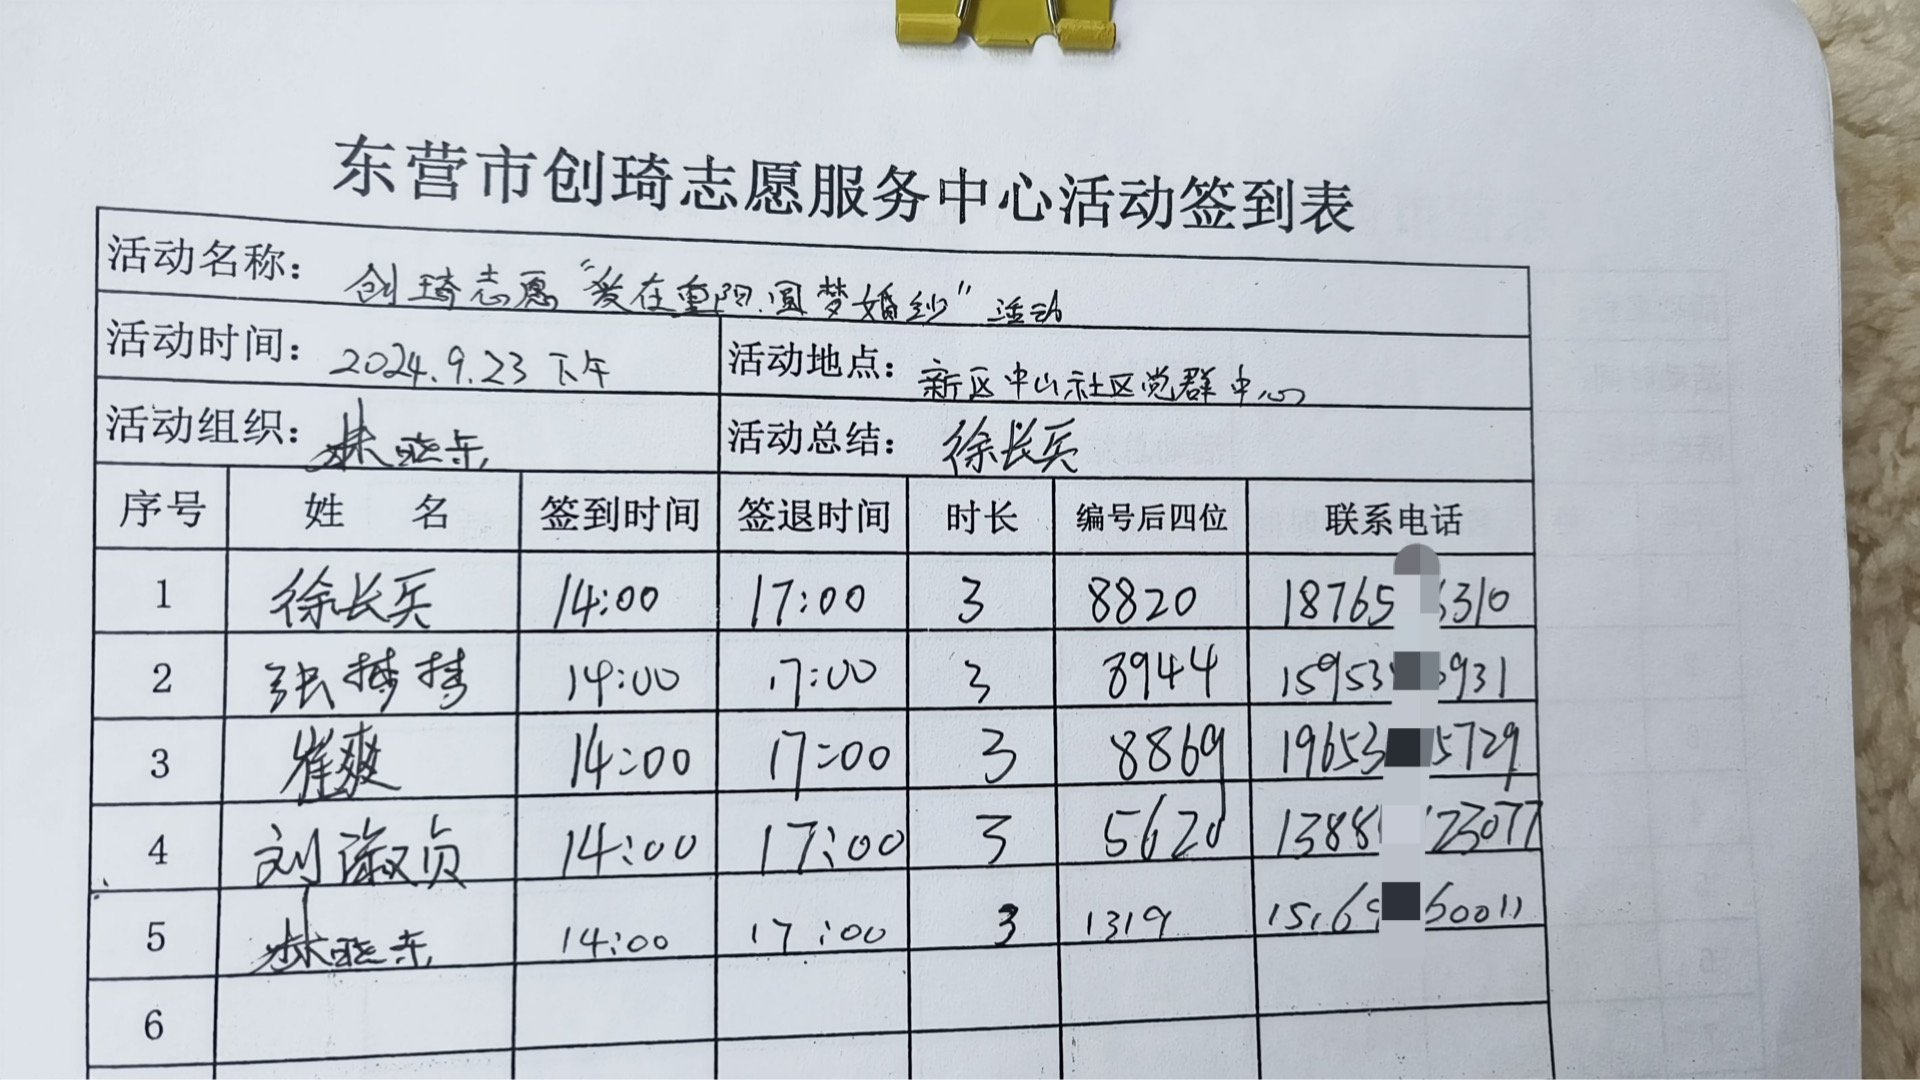 东营市创琦志愿服务中心活动签到表
活动名称： 创琦志愿“爱在重阳.圆梦婚纱”活动
活动时间： 2024.9.23 下午 活动地点： 新区中山社区党群中心
活动组织： 林晓东 活动总结： 徐长兵
序号 姓 名 签到时间 签退时间 时长 编号后四位 联系电话
1 徐长兵 14:00 17:00 3 8820 18765 6310
2 张 14:00 17:00 3 8944 15953 931
3 崔爽 14:00 17:00 3 8869 19653 5729
4 刘淑贞 14:00 17:00 3 5620 1388 23077
5 林晓东 14:00 17:00 3 1319 15169 60011
6